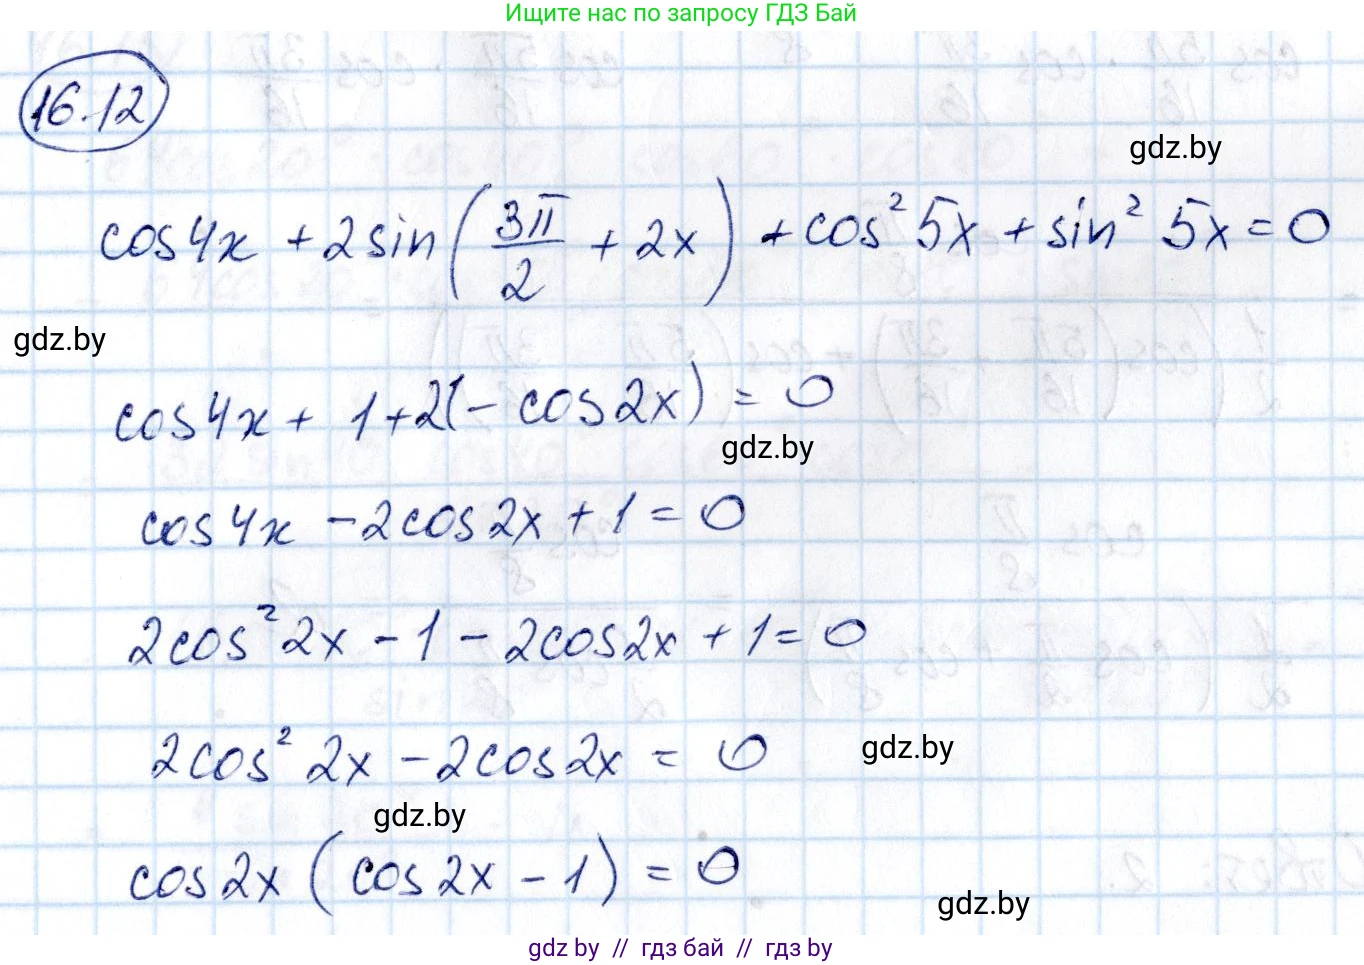 Ищите нас по запросу ГДЗ Бай
16.12
gdz.by
cos4x + 2sin(3π/2 + 2x) + cos² 5x + sin² 5x = 0
gdz.by
cos4x + 1 + 2(- cos2x) = 0
gdz.by
cos4x - 2cos2x + 1 = 0
2cos² 2x - 1 - 2cos2x + 1 = 0
2cos² 2x - 2cos2x = 0
gdz.by
gdz.by
cos2x (cos2x - 1) = 0
gdz.by
gdz by // гдз бай // гдз by